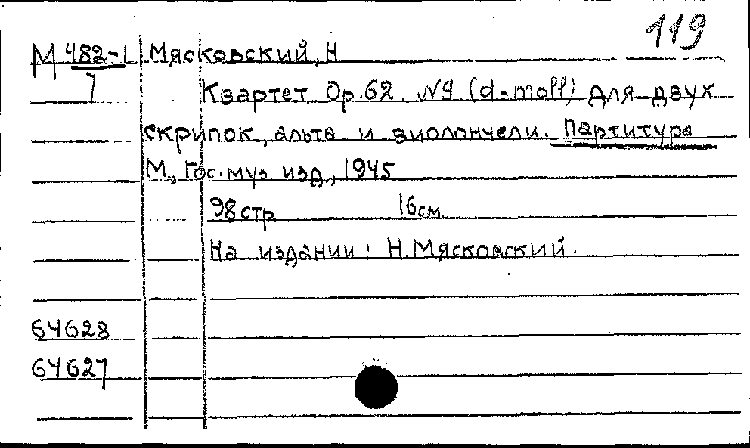 119
М 482-1 Мясковский, Н
7 Квартет Op.62. №9 (d-moll) для двух
скрипок, альта и виолончели. Партитура
М., Гос. муз изд., 1945
98 стр 16 см.
На издании: Н. Мясковский.
64628
64627